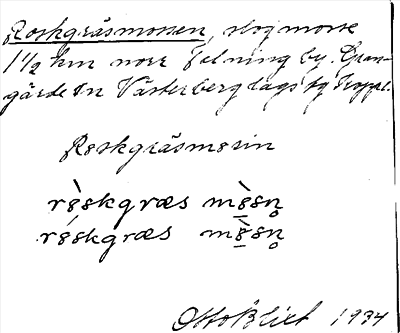 Roskgräsmossen, slogmosse
1 1/2 km norr Telning by. Gran-
gärde sn Västerbergslags bg Koppbl.
Rɵskgräsmɵsin
rɵ̀skgræs mɵ̀sn̥
rɵ́skgræs mɵ̀sn̥
Otto Blixt 1934